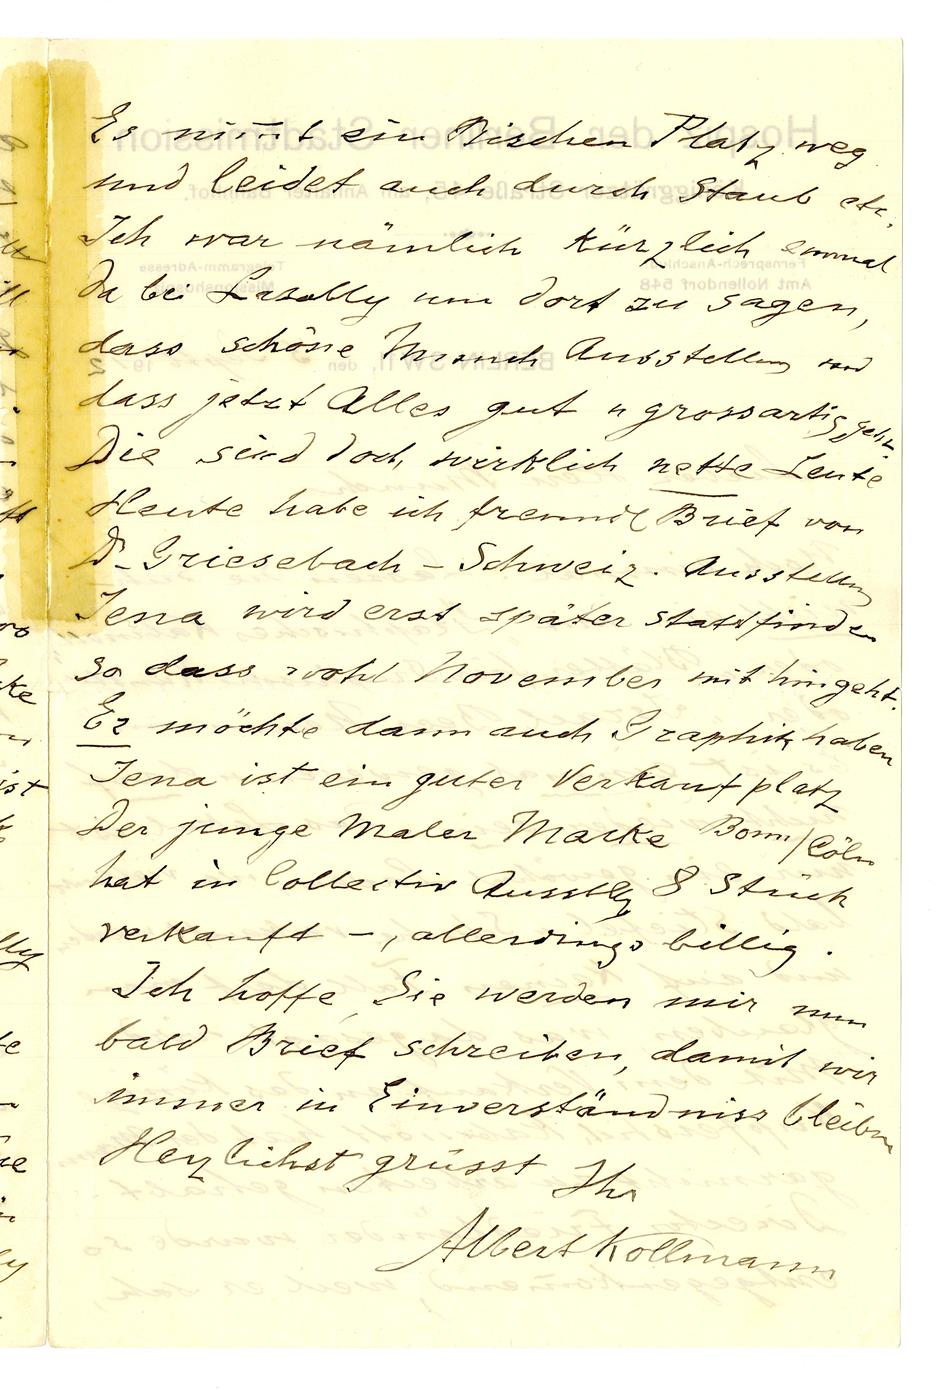 Es nim̄t ein Bischen Platz weg
und leidet auch durch Staub etc.
Ich war nämlich kürzlich einmal
da bei Lasally um dort zu sagen,
dass schöne Munch Ausstellung und
dass jetzt Alles gut u grossartig geht.
Die sind doch wirklich nette Leute
Heute habe ich freundl Brief von
Dr Griesebach – Schweiz. Ausstellung
Jena wird erst später stattfinden
so dass wohl November mit hingeht.
Er möchte dann auch Graphik haben
Jena ist ein guter Verkaufplatz
Der junge Maler Macke Bonn/Cöln
hat in Collectiv Ausstllg 8 Stück
verkauft –, allerdings billig.
Ich hoffe, Sie werden mir nun
bald Brief schreiben, damit wir
immer in Einverständniss bleiben
Herzlichst grüsst Ihr
Albert Kollmann